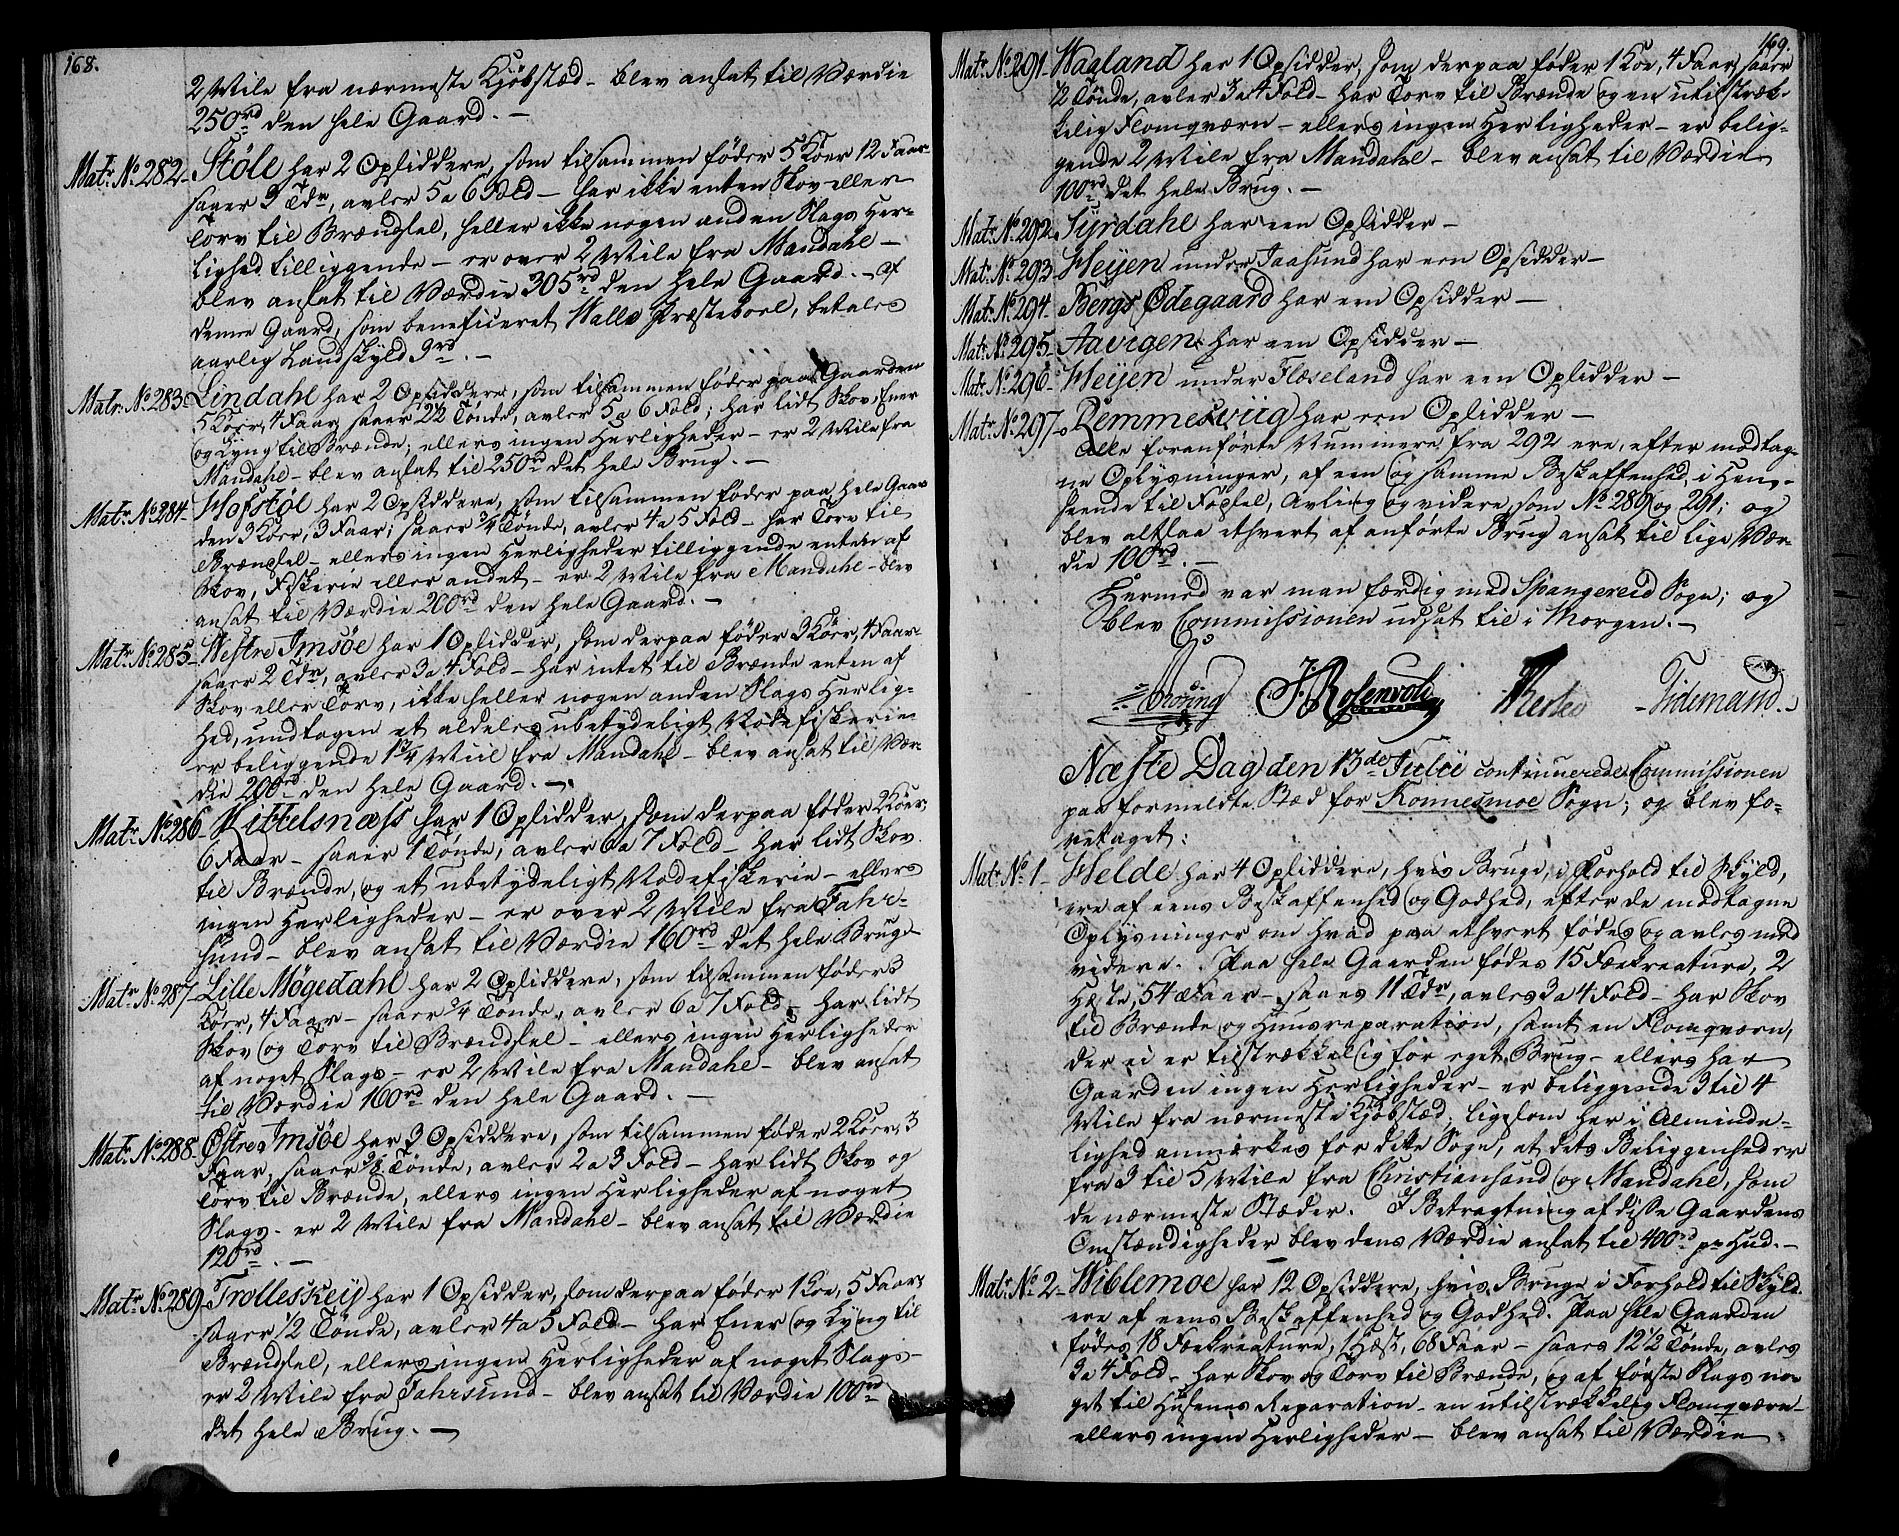 168.
2 Mile fra nærmeste Kjöbstæd – blev ansat til Værdie
250rd den hele Gaard. –
Matr. No. 282 – Stöle har 2 Opsiddere, som tilsammen föder 5 Köer 12 Faar –
saaer 3 Tdr, avler 5 a 6 Fold – har ikke enten Skov eller
Torv til Brændsel, heller ikke nogen anden Slags Her-
lighed tilliggende – er over 2 Mile fra Mandahl –
blev ansat til Værdie 305rd den hele Gaard. – af
denne Gaard, som beneficeret Halle Præsteboel, betales
aarlig Landskyld 9rd. –
Matr. No. 283 – Lindahl har 2 Opsiddere, som tilsammen föder paa Gaarden
5 Köer, 4 Faar, saaer 2 1/2 Tönde, avler 5 a 6 Fold; har lidt Skov, Ener
og Lyng til Brænde; ellers ingen Herligheder – er 2 Mile fra
Mandahl – blev ansat til 250rd det hele Brug. –
Matr. No. 284 – Hofstöl har 2 Opsiddere, som tilsammen föder paa hele Gaar-
den 3 Köer, 3 Faar; saaer 3/4 Tönde, avler 4 a 5 Fold – har Torv til
Brændsel – ellers ingen Herligheder tilliggende enten af
Skov, Fiskerie eller andet – er 2 Mile fra Mandahl – blev
ansat til Værdie 200rd den hele Gaard. –
Matr. No. 285 – Westre Imsöe har 1 Opsidder, som derpaa föder 3 Köer, 4 Faar –
saaer 2 Tdr, avler 3 a 4 Fold – har intet til Brænde enten af
Skov eller Torv, ikke heller nogen anden Slags Herlig-
hed, undtagen et aldeles ubetydeligt Nodefiskerie –
er beliggende 1 3/4 Miil fra Mandahl – blev ansat til Vær-
die 200rd den hele Gaard. –
Matr. No. 286 – Kittelsnæss har 1 Opsidder, som derpaa föder 2 Köer,
6 Faar – saaer 1 Tönde, avler 6 a 7 Fold – har lidt Skov
til Brænde, og et ubetydeligt Nodefiskerie – ellers
ingen Herligheder – er over 2 Mile fra Fahr-
sund – blev ansat til Værdie 160rd det hele Brug –
Matr. No. 287 – Lille Mögedahl har 2 Opsiddere, som tilsammen föder 3
Köer, 4 Faar – saaer 3/4 Tönde, avler 6 a 7 Fold – har lidt
Skov og Torv til Brændsel – ellers ingen Herligheder
af noget Slags – er 2 Mile fra Mandahl – blev ansat
til Værdie 160rd den hele Gaard. –
Matr. No. 288 – Östre Imsöe har 3 Opsiddere, som tilsammen föder 2 Köer, 3
Faar, saaer Tönde, avler 2 a 3 Fold – har lidt Skov og
Torv til Brænde, ellers ingen Herligheder af noget
Slags – er 2 Mile fra Mandahl – blev ansat til Værdie
120rd. –
Matr. No. 289 – Trolleskeij har 1 Opsidder, som derpaa föder 1 Koe, 5 Faar,
saaer 1/2 Tönde, avler 4 a 5 Fold – har Ener og Lyng til
Brændsel, ellers ingen Herligheder af noget Slags –
er 2 Mile fra Fahrsund – blev ansat til Værdie 100rd
det hele Brug. –
169.
Matr. No. 291 – Wagland har 1 Opsidder, som derpaa föder 1 Koe, 4 Faar, saaer
1/2 Tönde, avler 3 a 4 Fold – har Torv til Brænde og en utilstræk-
kelig Flomqværn – ellers ingen Herligheder – er belig-
gende 2 Mile fra Mandahl – blev ansat til Værdie
100rd det hele Brug. –
Matr. No. 292 – Syrdahl har een Opsidder –
Matr. No. 293 – Heijen under Jaasund har een Opsidder –
Matr. No. 294 – Bergs Ödegaard har een Opsidder –
Matr. No. 295 – Aavigen har een Opsidder –
Matr. No. 296 – Heijen under Flæseland har een Opsidder –
Matr. No. 297 – Remmesviig har een Opsidder –
Alle foranförte Nummere fra 292 ere, efter modtag-
ne Oplysninger, af een og samme Beskaffenhed, i Hen-
seende til Födsel, Avling og videre, som No. 289 og 291; og
blev altsaa ethvert af anförte Brug ansat til lige Vær-
die 100rd. –
Hermed var man færdig med Spangereid Sogn; og
blev Commissionen udsat til i Morgen. –
J. Rosenvold Tidemand.
Næste Dag den 13de Julii continuerede Commissionen
paa formeldte Stæd for Konnesmoe Sogn; og blev fo-
retaget:
Matr. No. 1 – Helde har 4 Opsiddere, hvis Bruge, i Forhold til Skyld,
ere af eens Beskaffenhed og Godhed, efter de modtagne
Oplysninger om hvad paa ethvert födes og avles med
videre. Paa hele Gaarden födes 15 Fækreature, 2
Heste, 54 Faar – saaes 11 Tdr, avles 3 a 4 Fold – har Skov
til Brænde og Huusreparation, samt en Flomqværn,
der ei er tilstrækkelig for eget Brug – ellers har
Gaarden ingen Herligheder – er beliggende 3 til 4
Mile fra nærmeste Kjöbstæd; ligesom her i Alminde-
lighed anmærkes for dette Sogn, at dets Beliggenhed er
fra 3 til 5 Mile fra Christiansand og Mandahl, som
de nærmeste Stæder. I Betragtning af disse Gaardens
Omstændigheder blev dens Værdie ansat til 400rd pr Hud. –
Matr. No. 2 – Wiblemoe har 12 Opsiddere, hvis Bruge i Forhold til Skyld
ere af eens Beskaffenhed og Godhed. Paa hele Gaarden
födes 18 Fækreature, 1 Hest, 68 Faar – saaes 12 1/2 Tönde, avles
3 a 4 Fold – har Skov og Torv til Brænde, og af förste Slags no-
get til Husenes Reparation – en utilstrækkelig Flomqværn –
ellers ingen Herligheder – blev ansat til Værdie